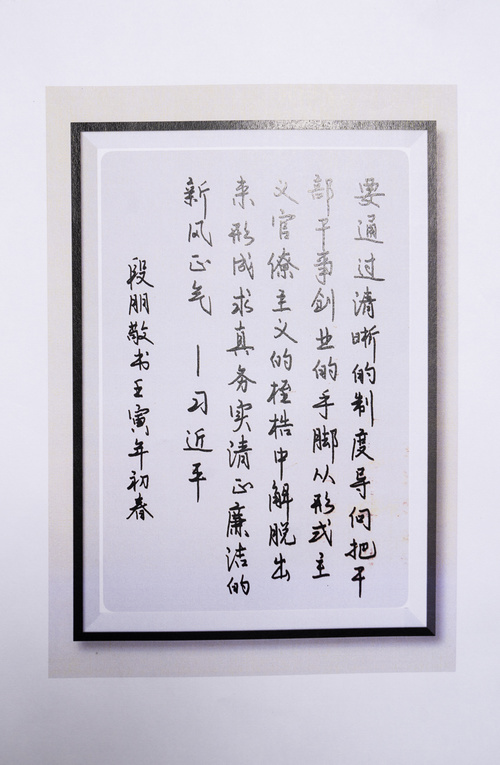 要通过清晰的制度导向把干
部干事创业的手脚从形式主
义官僚主义的桎梏中解脱出
来形成求真务实清正廉洁的
新风正气 — 习近平
段朋敬书壬寅年初春